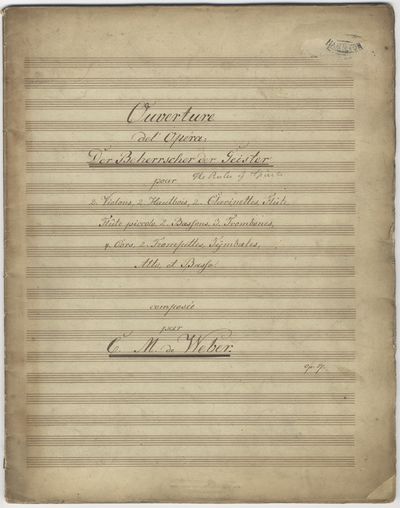 Ouverture
del Opera:
Der Beherrscher der Geister
pour The Ruler of Spirits
2. Violons, 2. Hautbois, 2. Clarinettes, Flûte
Flûte piccolo, 2. Bassons, 3. Trombones,
4. Cors, 2. Trompettes, Tÿmbales,
Alto, et Basso.
composée
par
C. M. de Weber.